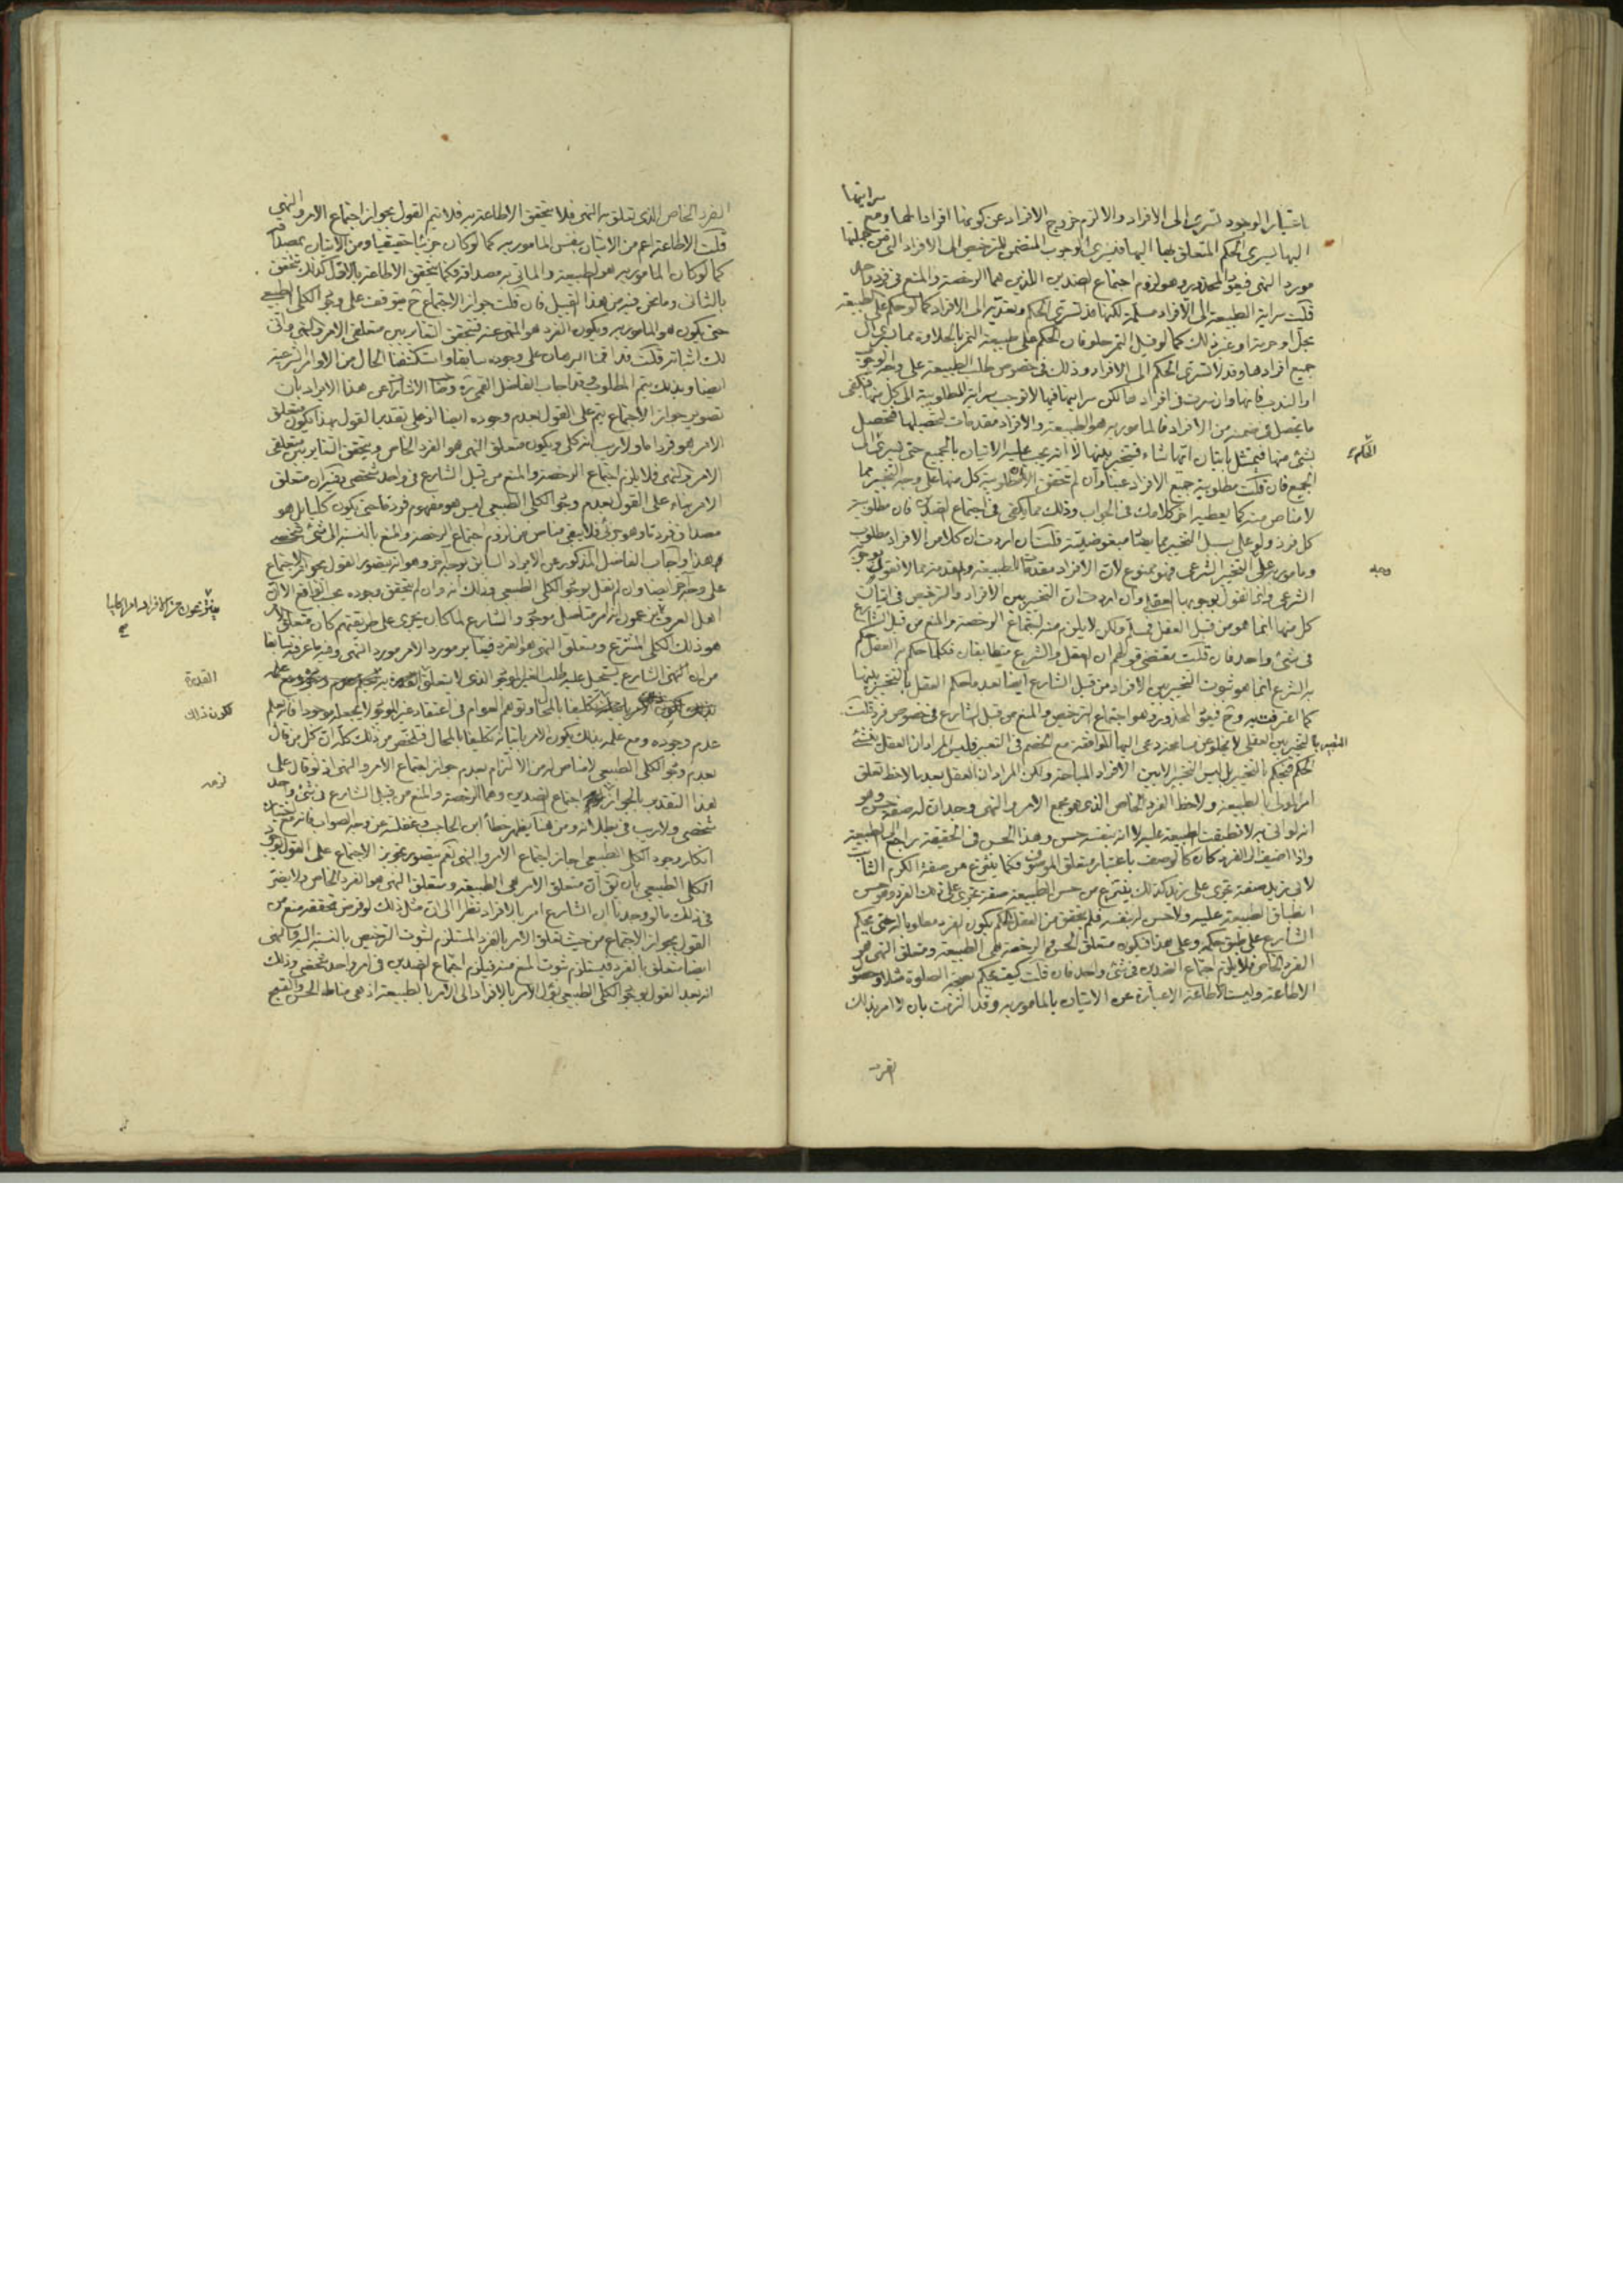 باعتبار الوجود تسرى الى الافراد والا لزم خروج الافراد عن كونها افرادا لها ومع سرايتها
اليها يسرى الحكم المتعلق بها اليها فيسرى الوجوب المتضمن للترخيص الى الافراد التى من جملتها
مورد النهى فيعود المحذور وهو لزوم اجتماع الضدين اللذين هما الرخصة والمنع فى فرد واحد
قلت سراية الطبيعة الى الافراد مسلمة لكنها قد تسرى الحكم وتعديه الى الافراد كما لو حكم على طبيعة
بحل او حرمة او غير ذلك كما لو قيل التمر حلو فان الحكم على طبيعة التمر بالحلاوة مما يسرى الى
جميع افرادها وقد لا تسرى الحكم الى الافراد وذلك فى خصوص طلب الطبيعة على وجه الوجوب
او الندب فانها وان سرت فى افرادها لكن سرايتها فيها لا توجب سراية المطلوبية الى كل منها فيكفى
ما يحصل فى ضمنه من الافراد فالمأمور به هو الطبيعة والافراد مقدمات لتحصيلها فتحصل
بشئ منها فيمتثل باتيان ايها شاء فيتخير بينها لا انه يجب عليه الاتيان بالجميع حتى يسرى الى
الحكم
الجميع فان قلت مطلوبية جميع الافراد عينا وان لم تتحقق الا ان مطلوبية كل منها على وجه التخيير مما
لا مناص منه كما يعطيه اخر كلامك فى الجواب وذلك مما يكفى فى اجتماع الضدين فان مطلوبية
كل فرد ولو على سبيل التخيير مما ينافى مبغوضيته قلت ان اردت ان كلا من الافراد مطلوب
ومأمور به على التخيير الشرعى فهو ممنوع لان الافراد مقدمات للطبيعة والمقدمة مما لا نقول بوجوبه
وجبه
الشرعى وانما نقول بوجوبها العقلى وان اردت ان التخيير بين الافراد والترخيص فى اتيان
كل منها انما هو من قبل العقل فمسلم ولكن لا يلزم منه اجتماع الرخصة والمنع من قبل الشارع
فى شئ واحد فان قلت مقتضى قولهم ان العقل والشرع متطابقان فكلما حكم به العقل حكم
به الشرع انما هو ثبوت التخيير بين الافراد من قبل الشارع ايضا بعد ما حكم العقل بالتخيير بينها
كما اعترفت به وح فيعود المحذور وهو اجتماع الترخيص والمنع من قبل الشارع فى خصوص فرد قلت
التعبير بالتخيير العقلى لا يخلو عن مسامحة دعى اليها الموافقة مع الخصم فى التعبير فليس المراد ان العقل ينشئ
الحكم فيحكم بالتخيير بل ليس التخيير الا بين الافراد المباحة ولكن المراد ان العقل بعد ما لاحظ تعلق
امر المولى بالطبيعة ولاحظ الفرد الخاص الذى هو مجمع الامر والنهى وجد ان له صفة حسن وهو
انه لو اتى به لانطبقت الطبيعة عليه لا انه بنفسه حسن وهذا الحسن فى الحقيقة راجع الى الطبيعة
واذا اضيف الى الفرد كان كالوصف باعتبار متعلق الموصوف فكما ينتزع من صفة الكرم الثابت
لابى زيد صفة تجرى على زيد كذلك ينتزع من حسن الطبيعة صفة تجرى على ذلك الفرد وهو حسن
انطباق الطبيعة عليه ولا حسن له بنفسه فلم يتحقق من العقل الحكم بكون الفرد مطلوبا له حتى يحكم
الشارع على طبق حكمه وعلى هذا فيكون متعلق الحسن والرخصة هى الطبيعة ومتعلق النهى هو
الفرد الخاص فلا يلزم اجتماع الضدين فى شئ واحد فان قلت كيف يحكم بصحة الصلوة مثلا وحصول
الاطاعة وليست الاطاعة الا عبارة عن الاتيان بالمأمور به وقد التزمت بان لا امر بذلك
الفرد
الفرد الخاص الذى تعلق به النهى فلا يتحقق الاطاعة به فلا يتم القول بجواز اجتماع الامر والنهى
قلت الاطاعة اعم من الاتيان بنفس المأمور به كما لو كان جزئيا حقيقيا ومن الاتيان بمصداقه
كما لو كان المأمور به هو الطبيعة والمأتى به مصداقه فكما يتحقق الاطاعة بالاول كذلك يتحقق
بالثانى وما نحن فيه من هذا القبيل فان قلت جواز الاجتماع ح متوقف على وجود الكلى الطبيعى
حتى يكون هو المأمور به ويكون الفرد هو المنهى عنه فيتحقق التغاير بين متعلقى الامر والنهى وانى
لك اثباته قلت قد اقمنا البرهان على وجوده سابقا واستكشفنا الحال من الاوامر الشرعية
ايضا وبذلك يتم المطلوب وقد اجاب الفاضل القمى ره عن هذا الايراد بان
تصوير جواز الاجتماع يتم على القول بعدم وجوده ايضا اذ على تقدير القول بهذا يكون متعلق
الامر هو فرد اما ولا ريب انه كلى ويكون متعلق النهى هو الفرد الخاص ويتحقق التغاير بين متعلقى
الامر والنهى فلا يلزم اجتماع الرخصة والمنع من قبل الشارع فى واحد شخصى وفيه ان متعلق
الامر بناء على القول بعدم وجود الكلى الطبيعى ليس هو مفهوم فرد ما حتى يكون كليا بل هو
مصداق فرد ما وهو جزئى فلا يبقى مناص من لزوم اجتماع الرخصة والمنع بالنسبة الى شئ شخصى
هذا واجاب الفاضل المذكور عن الايراد السابق بوجه اخر وهو انه يتصور القول بجواز الاجتماع
على وجه اخر ايضا وان لم نقل بوجود الكلى الطبيعى وذلك انه وان لم يتحقق وجوده بحسب الواقع الا ان
اهل العرف يزعمون انه امر متأصل موجود والشارع لما كان يجرى على طريقتهم كان متعلق الامر
هو ذلك الكلى المنتزع ومتعلق النهى هو الفرد فيغاير مورد الامر مورد النهى وفيه ما عرفته سابقا
من ان الشارع يستحيل عليه طلب الغير الموجود الذى لا يتعلق القدرة به
القدرة
تكليفا بالمحال وتوهم العوام فى اعتقاد غير الموجود لا يجعله موجودا فانه يعلم
لكون ذلك
عدم وجوده ومع علمه بذلك يكون الامر باتيانه تكليفا بالمحال فتلخص من ذلك كله ان كل من قال
بعدم وجود الكلى الطبيعى لا مناص له من الالتزام بعدم جواز اجتماع الامر والنهى اذ لو قال على
هذا التقدير بالجواز لزمه اجتماع الضدين وهما الرخصة والمنع من قبل الشارع فى شئ واحد
لزمه
شخصى ولا ريب فى بطلانه ومن هنا يظهر خطأ ابن الحاجب وغفلته عن وجه الصواب فانه مع اختياره
انكار وجود الكلى الطبيعى اجاز اجتماع الامر والنهى نعم يتصور تجويز الاجتماع على القول بوجود
الكلى الطبيعى بان يق ان متعلق الامر هى الطبيعة ومتعلق النهى هو الفرد الخاص ولا يضر
فى ذلك ما لو وجدنا ان الشارع امر بالافراد نظرا الى ان مثل ذلك لو فرض تحققه منع من
القول بجواز الاجتماع من حيث تعلق الامر بالفرد المستلزم لثبوت الترخيص بالنسبة اليه والنهى
ايضا متعلق بالفرد فيستلزم ثبوت المنع منه فيلزم اجتماع الضدين فى امر واحد شخصى وذلك
انه بعد القول بوجود الكلى الطبيعى نؤل الامر بالافراد الى الامر بالطبيعة اذ هى مناط الحسن والقبح